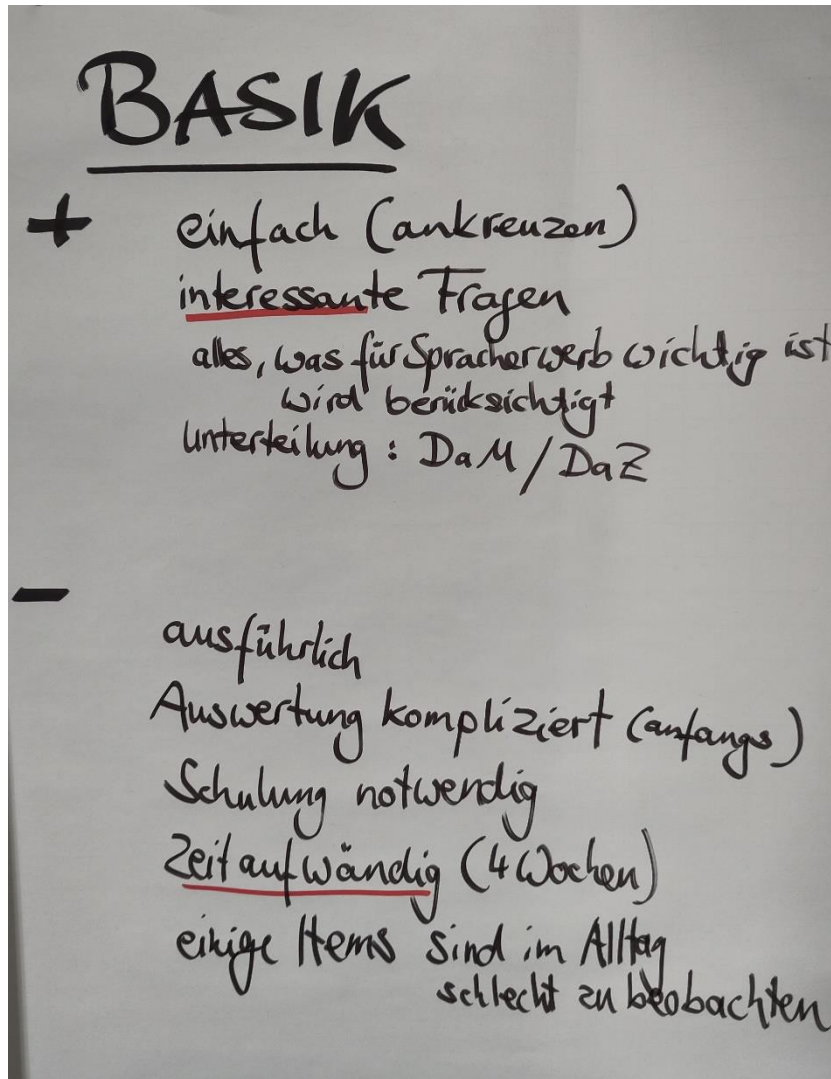 BASIK
+ einfach (ankreuzen)
interessante Fragen
alles, was für Spracherwerb wichtig ist
wird berücksichtigt
Unterteilung : DaM / DaZ
-
ausführlich
Auswertung kompliziert (anfangs)
Schulung notwendig
Zeitaufwändig (4 Wochen)
einige Items sind im Alltag
schlecht zu beobachten